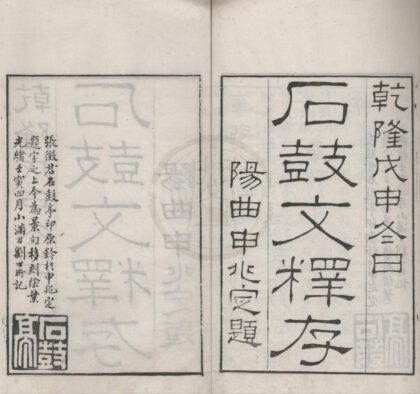 乾隆戊申冬日
石鼓文釋存
陽曲申兆定題
張徵君石鼓亭印原鈐於申兆定
題字之上今為景勾移刻餘葉
光緒壬寅四月小滿日劉世珩記
石鼓亭